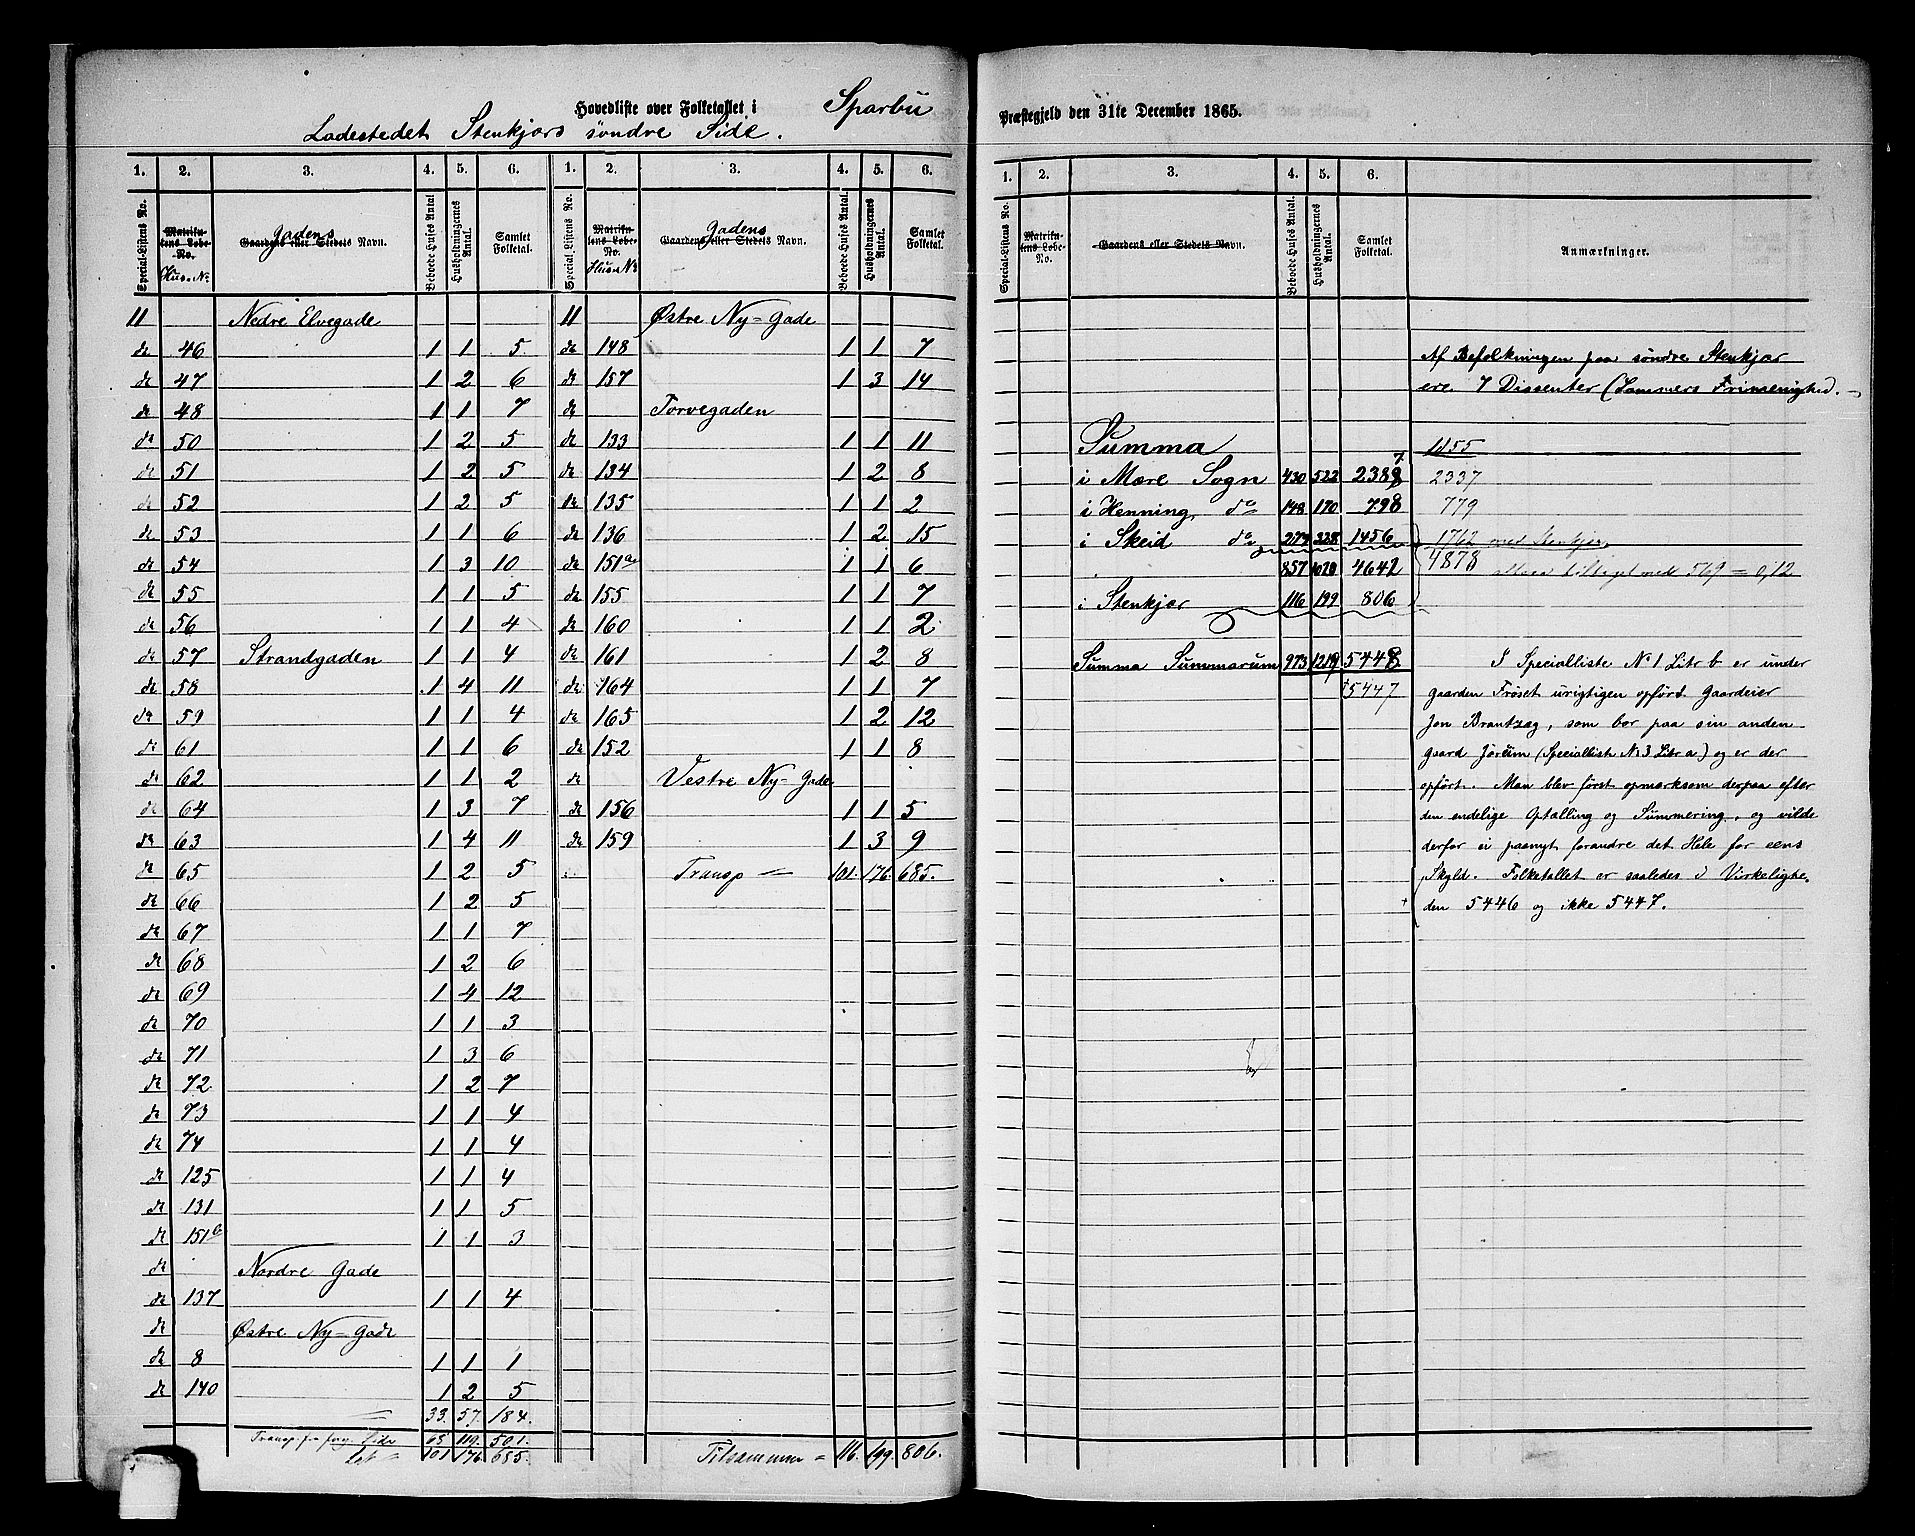 Hovedliste over Folketallet i Sparbu Præstegjeld den 31te December 1865.
Ladestedet Stenkjærs søndre Side.
1. 2. 3. 4. 5. 6. 1. 2. 3. 4. 5. 6.
Special-Listens No. Matrikulens Løbe-No. Huus No. Gaardens eller Stedets Navn. Gadens Beboede Huses Antal. Husholdningernes Antal. Samlet Folketal.
Special-Listens No. Matrikulens Løbe-No. Huus No Gaardens eller Stedets Navn. Gadens Beboede Huses Antal. Husholdningernes Antal. Samlet Folketal.
11 Nedre Elvegade
do 46 1 1 5
do 47 1 2 6
do 48 1 1 7
do 50 1 2 5
do 51 1 2 5
do 52 1 2 5
do 53 1 1 6
do 54 1 3 10
do 55 1 1 5
do 56 1 1 4
do 57 Strandgaden 1 1 4
do 58 1 4 11
do 59 1 1 4
do 61 1 1 6
do 62 1 1 2
do 64 1 3 7
do 63 1 4 11
do 65 1 2 5
do 66 1 2 5
do 67 1 1 7
do 68 1 2 6
do 69 1 4 12
do 70 1 1 3
do 71 1 3 6
do 72 1 2 7
do 73 1 1 4
do 74 1 1 4
do 125 1 1 4
do 131 1 1 5
do 151b 1 1 3
do Nordre Gade
do 137 1 1 4
do Østre Ny-Gade
do 8 1 1 1
do 140 1 2 5
33. 57. 184.
Transp. fra forg. Side 68 119. 501.
Lat = 101 176. 685.
11 Østre Ny-Gade
do 148 1 1 7
do 157 1 3 14
do Torvegaden
do 133 1 1 11
do 134 1 2 8
do 135 1 1 2
do 136 1 2 15
do 151a 1 1 6
do 155 1 1 7
do 160 1 1 2
do 161 1 2 8
do 164 1 1 7
do 165 1 2 12
do 152 1 1 8
do Vestre Ny-Gade
do 156 1 1 5
do 159 1 3 9
Transp = 101. 176. 685.
Tilsammen = 116. 199. 806.
1. 2. 3. 4. 5. 6.
Special-Listens No. Matrikulens Løbe-No. Gaardens eller Stedets Navn. Beboede Huses Antal. Husholdningernes Antal. Samlet Folketal. Anmærkninger.
Af Befolkningen paa søndre Stenkjær
ere 7 Dissenter (Lammers Frimenighed.
Summa 1855
i Mære Sogn 430 522 2388 7. 2337
i Henning do 148 170 798 779
i Skeid do 279 328 1456 1762 med Stenkjær
857 1020 4642 4878 tillaget med 569 = 0,12
i Stenkjær 116 199 806
Summa Summarum 973 1219 5448
5447
I Specialliste No 1 Litr b. er under
gaarden Frøset urigtigen opført Gaardeier
Jon Brantzæg, som bor paa sin anden
gaard Jørum (Specialliste No 3 Litr a.) og er der
opført. Man blev først opmærksom derpaa efter
den endelige Optælling og Summering, og vilde
derfor ei paanyt forandre det Hele for eens
Skyld. Folketallet er saaledes i Virkelighe-
den 5446 og ikke 5447.